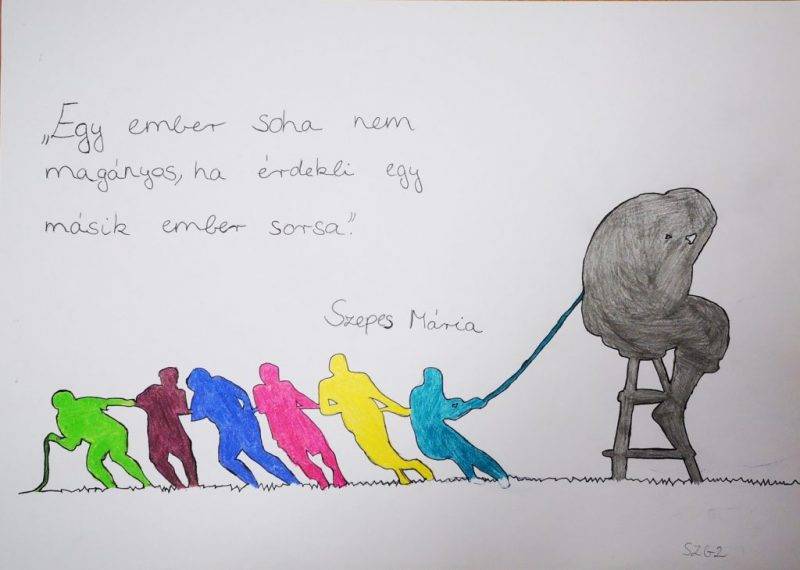 „Egy ember soha nem
magányos, ha érdekli egy
másik ember sorsa."
Szepes Mária
SZG2